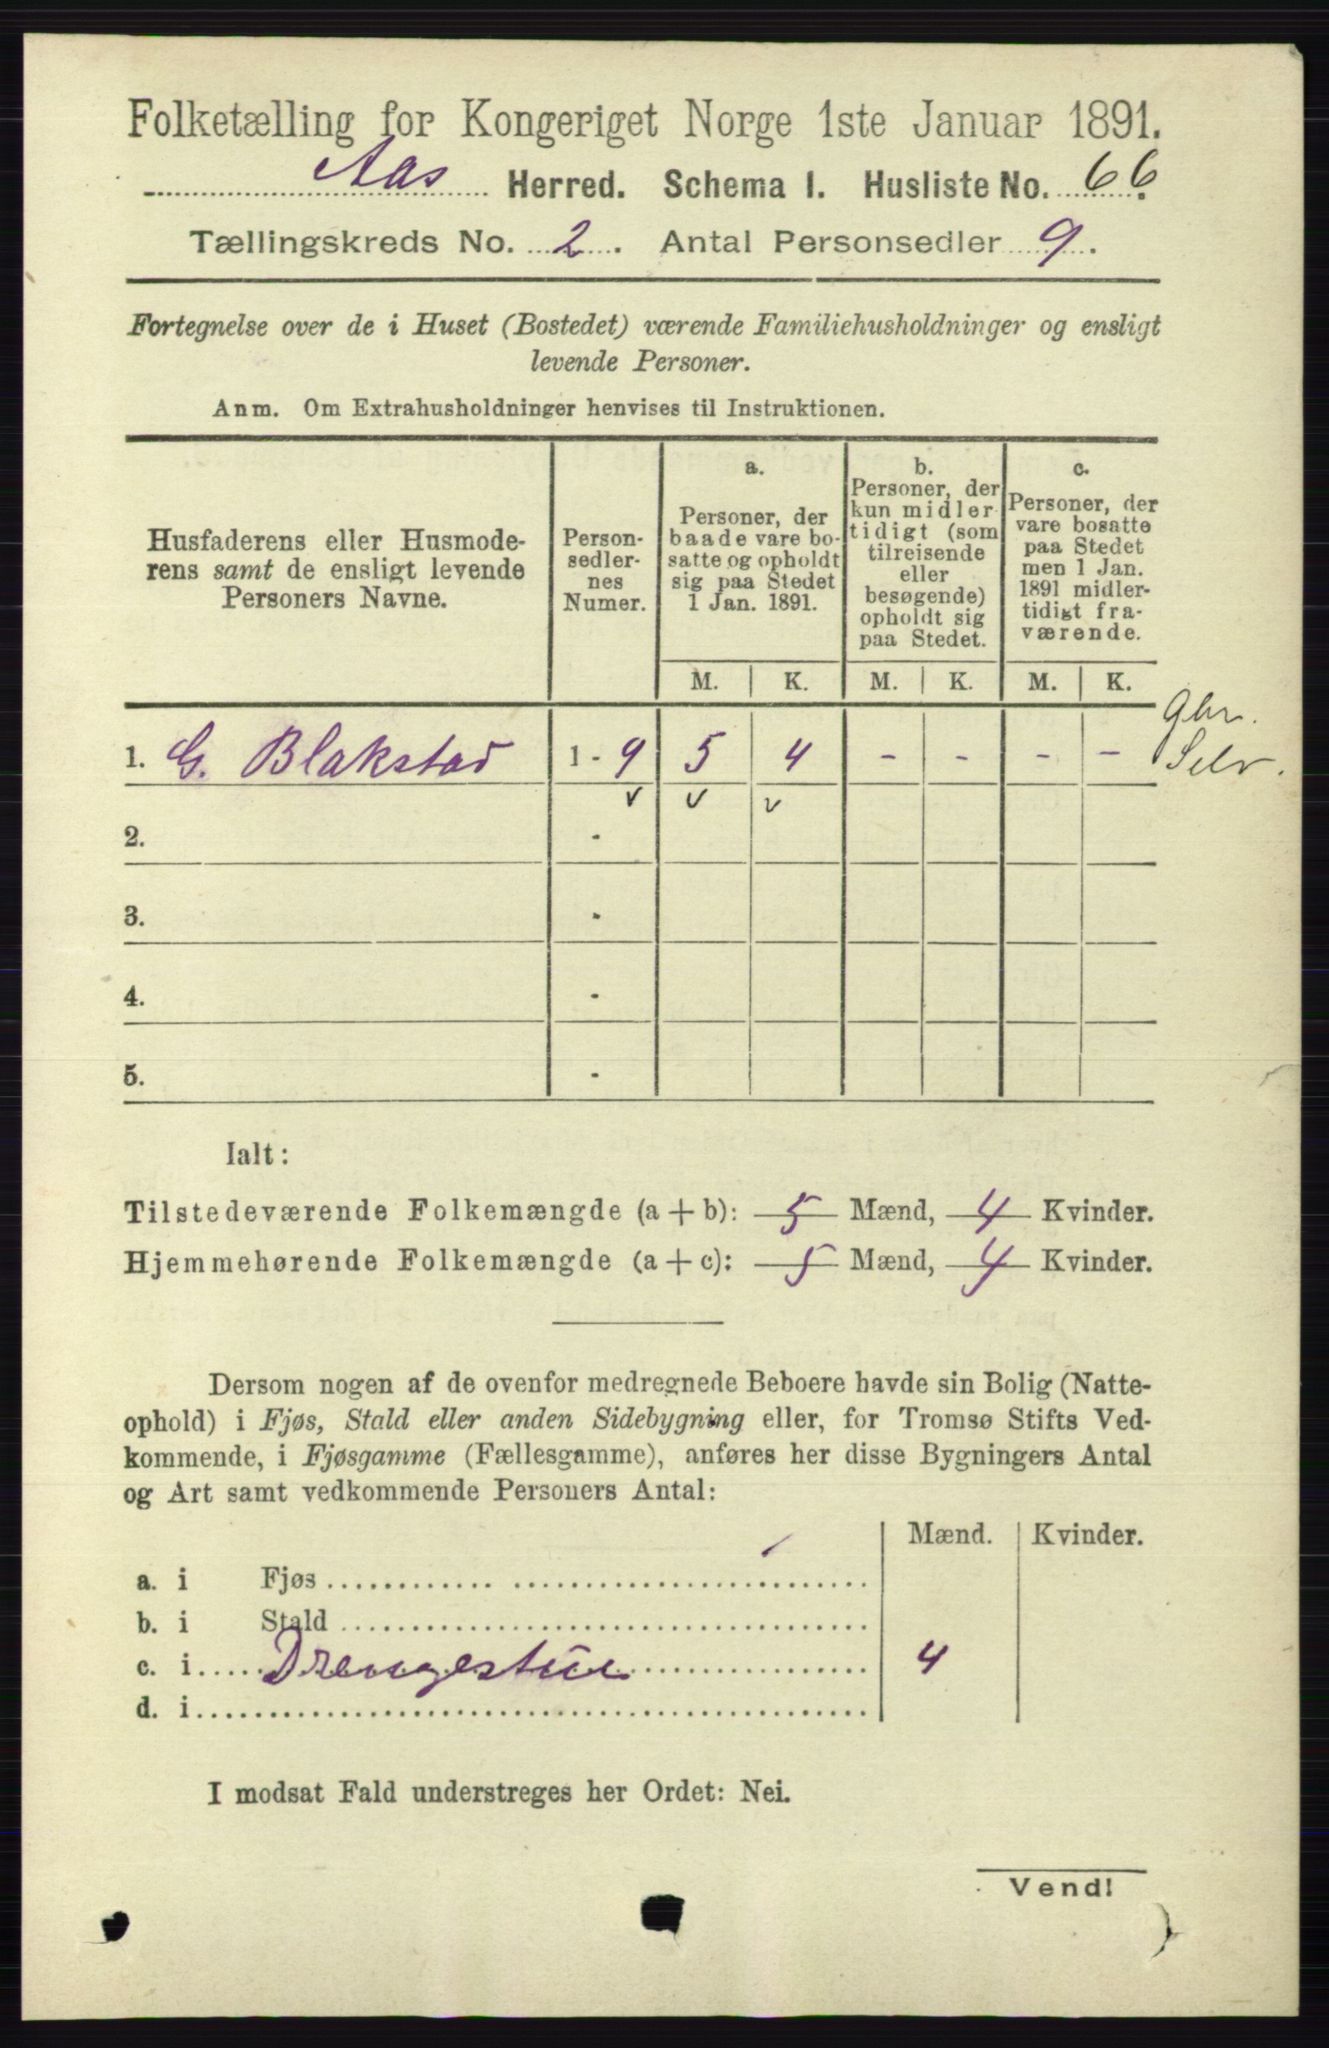 Folketælling for Kongeriget Norge 1ste Januar 1891.
Aas Herred. Schema I. Husliste No. 66
Tællingskreds No. 2. Antal Personsedler 9.
Fortegnelse over de i Huset (Bostedet) værende Familiehusholdninger og ensligt
levende Personer.
Anm. Om Extrahusholdninger henvises til Instruktionen.
Husfaderens eller Husmode-
rens samt de ensligt levende
Personers Navne.
Person-
sedler-
nes
Numer.
a.
Personer, der
baade vare bo-
satte og opholdt
sig paa Stedet
1 Jan. 1891.
b.
Personer, der
kun midler-
tidigt (som
tilreisende
eller
besøgende)
opholdt sig
paa Stedet.
c.
Personer, der
vare bosatte
paa Stedet
men 1 Jan.
1891 midler-
tidigt fra-
værende.
M. K. M. K. M. K.
1. G. Blakstad 1 - 9 5 4 - - - -
Gbr.
Selv.
v v v
2. -
3. -
4. -
5. -
Ialt:
Tilstedeværende Folkemængde (a + b): 5 Mænd, 4 Kvinder.
Hjemmehørende Folkemængde (a + c): 5 Mænd, 4 Kvinder.
Dersom nogen af de ovenfor medregnede Beboere havde sin Bolig (Natte-
ophold) i Fjøs, Stald eller anden Sidebygning eller, for Tromsø Stifts Ved-
kommende, i Fjøsgamme (Fællesgamme), anføres her disse Bygningers Antal
og Art samt vedkommende Personers Antal:
Mænd. Kvinder.
a. i Fjøs
b. i Stald
c. i Drengestue 4
d. i
I modsat Fald understreges her Ordet: Nei.
Vend!